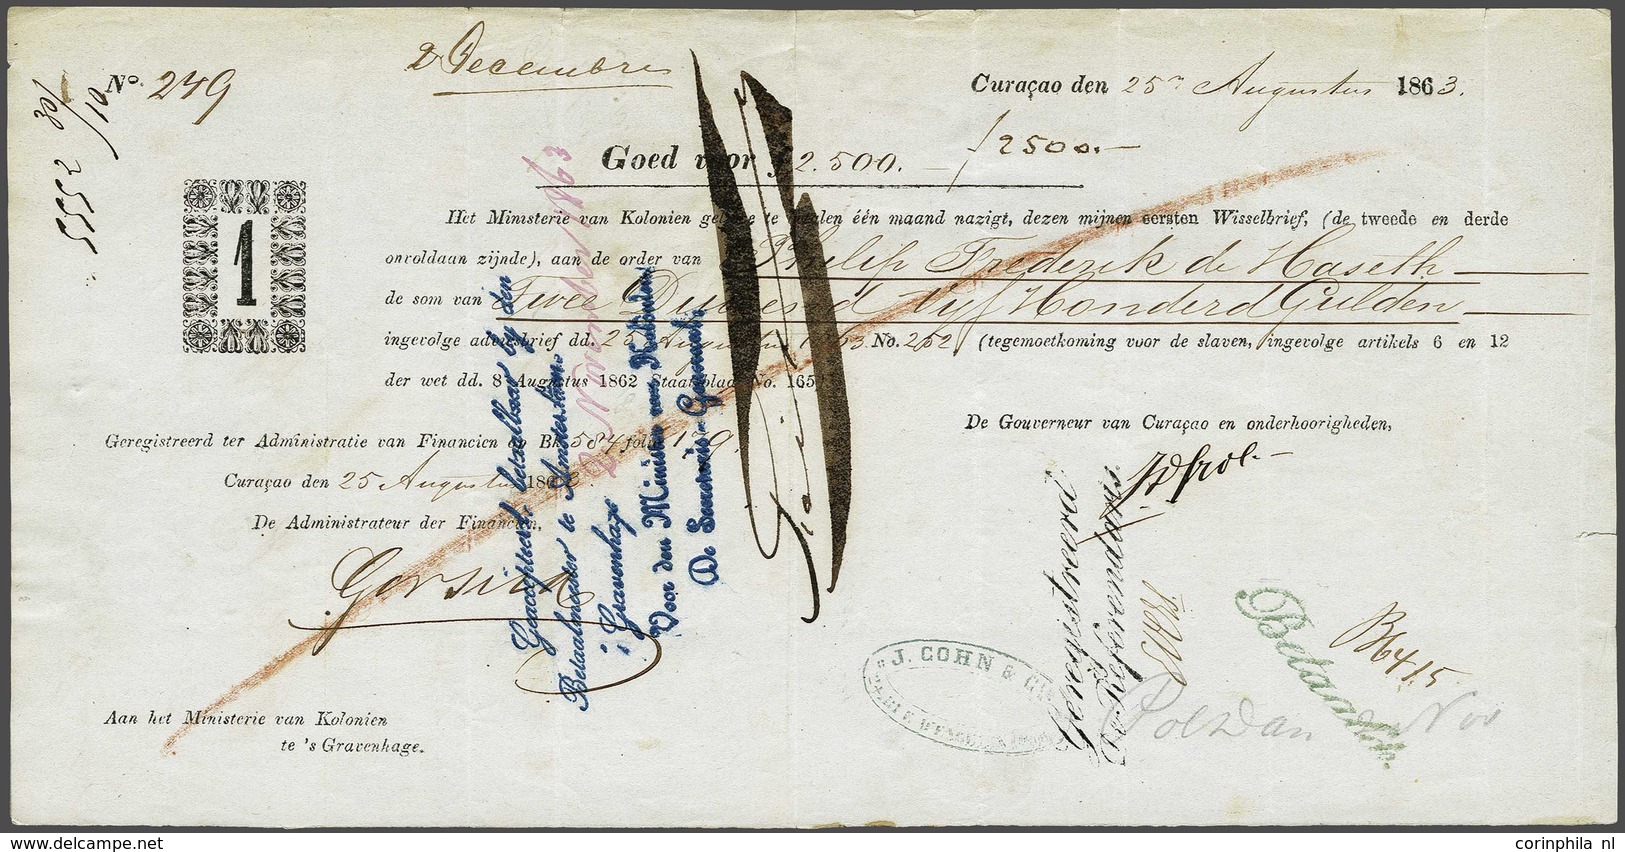 No. 249
2 Decembris
Curaçao den 25n Augustus 1863.
5552 30/10
Goed voor ƒ2.500.—
ƒ2500.—
1
Het Ministerie van Kolonien gelieve te betalen één maand nazigt, dezen mijnen eersten Wisselbrief, (de tweede en derde
onvoldaan zijnde), aan de order van Philip Frederik de Haseth
de som van Twee Duizend Vijf Honderd Gulden
ingevolge adviesbrief dd. 25 Augustus 1863 No. 252, (tegemoetkoming voor de slaven, ingevolge artikels 6 en 12
der wet dd. 8 Augustus 1862 Staatsblad No. 165
De Gouverneur van Curaçao en onderhoorigheden,
Geregistreerd ter Administratie van Financien op Bk. 584 folio 179.
Curaçao den 25 Augustus 1863
De Administrateur der Financien,
Gorsira
Geaccepteerd, betaalbaar bij den
Betaalmeester te Amsterdam.
's Gravenhage
Voor den Minister van Kolonien
De Secretaris-Generaal
2 November 1863
Geregistreerd
De Referendaris.
J. COHN &
Betaald.
Aan het Ministerie van Kolonien
te 's Gravenhage.
corinphila nl